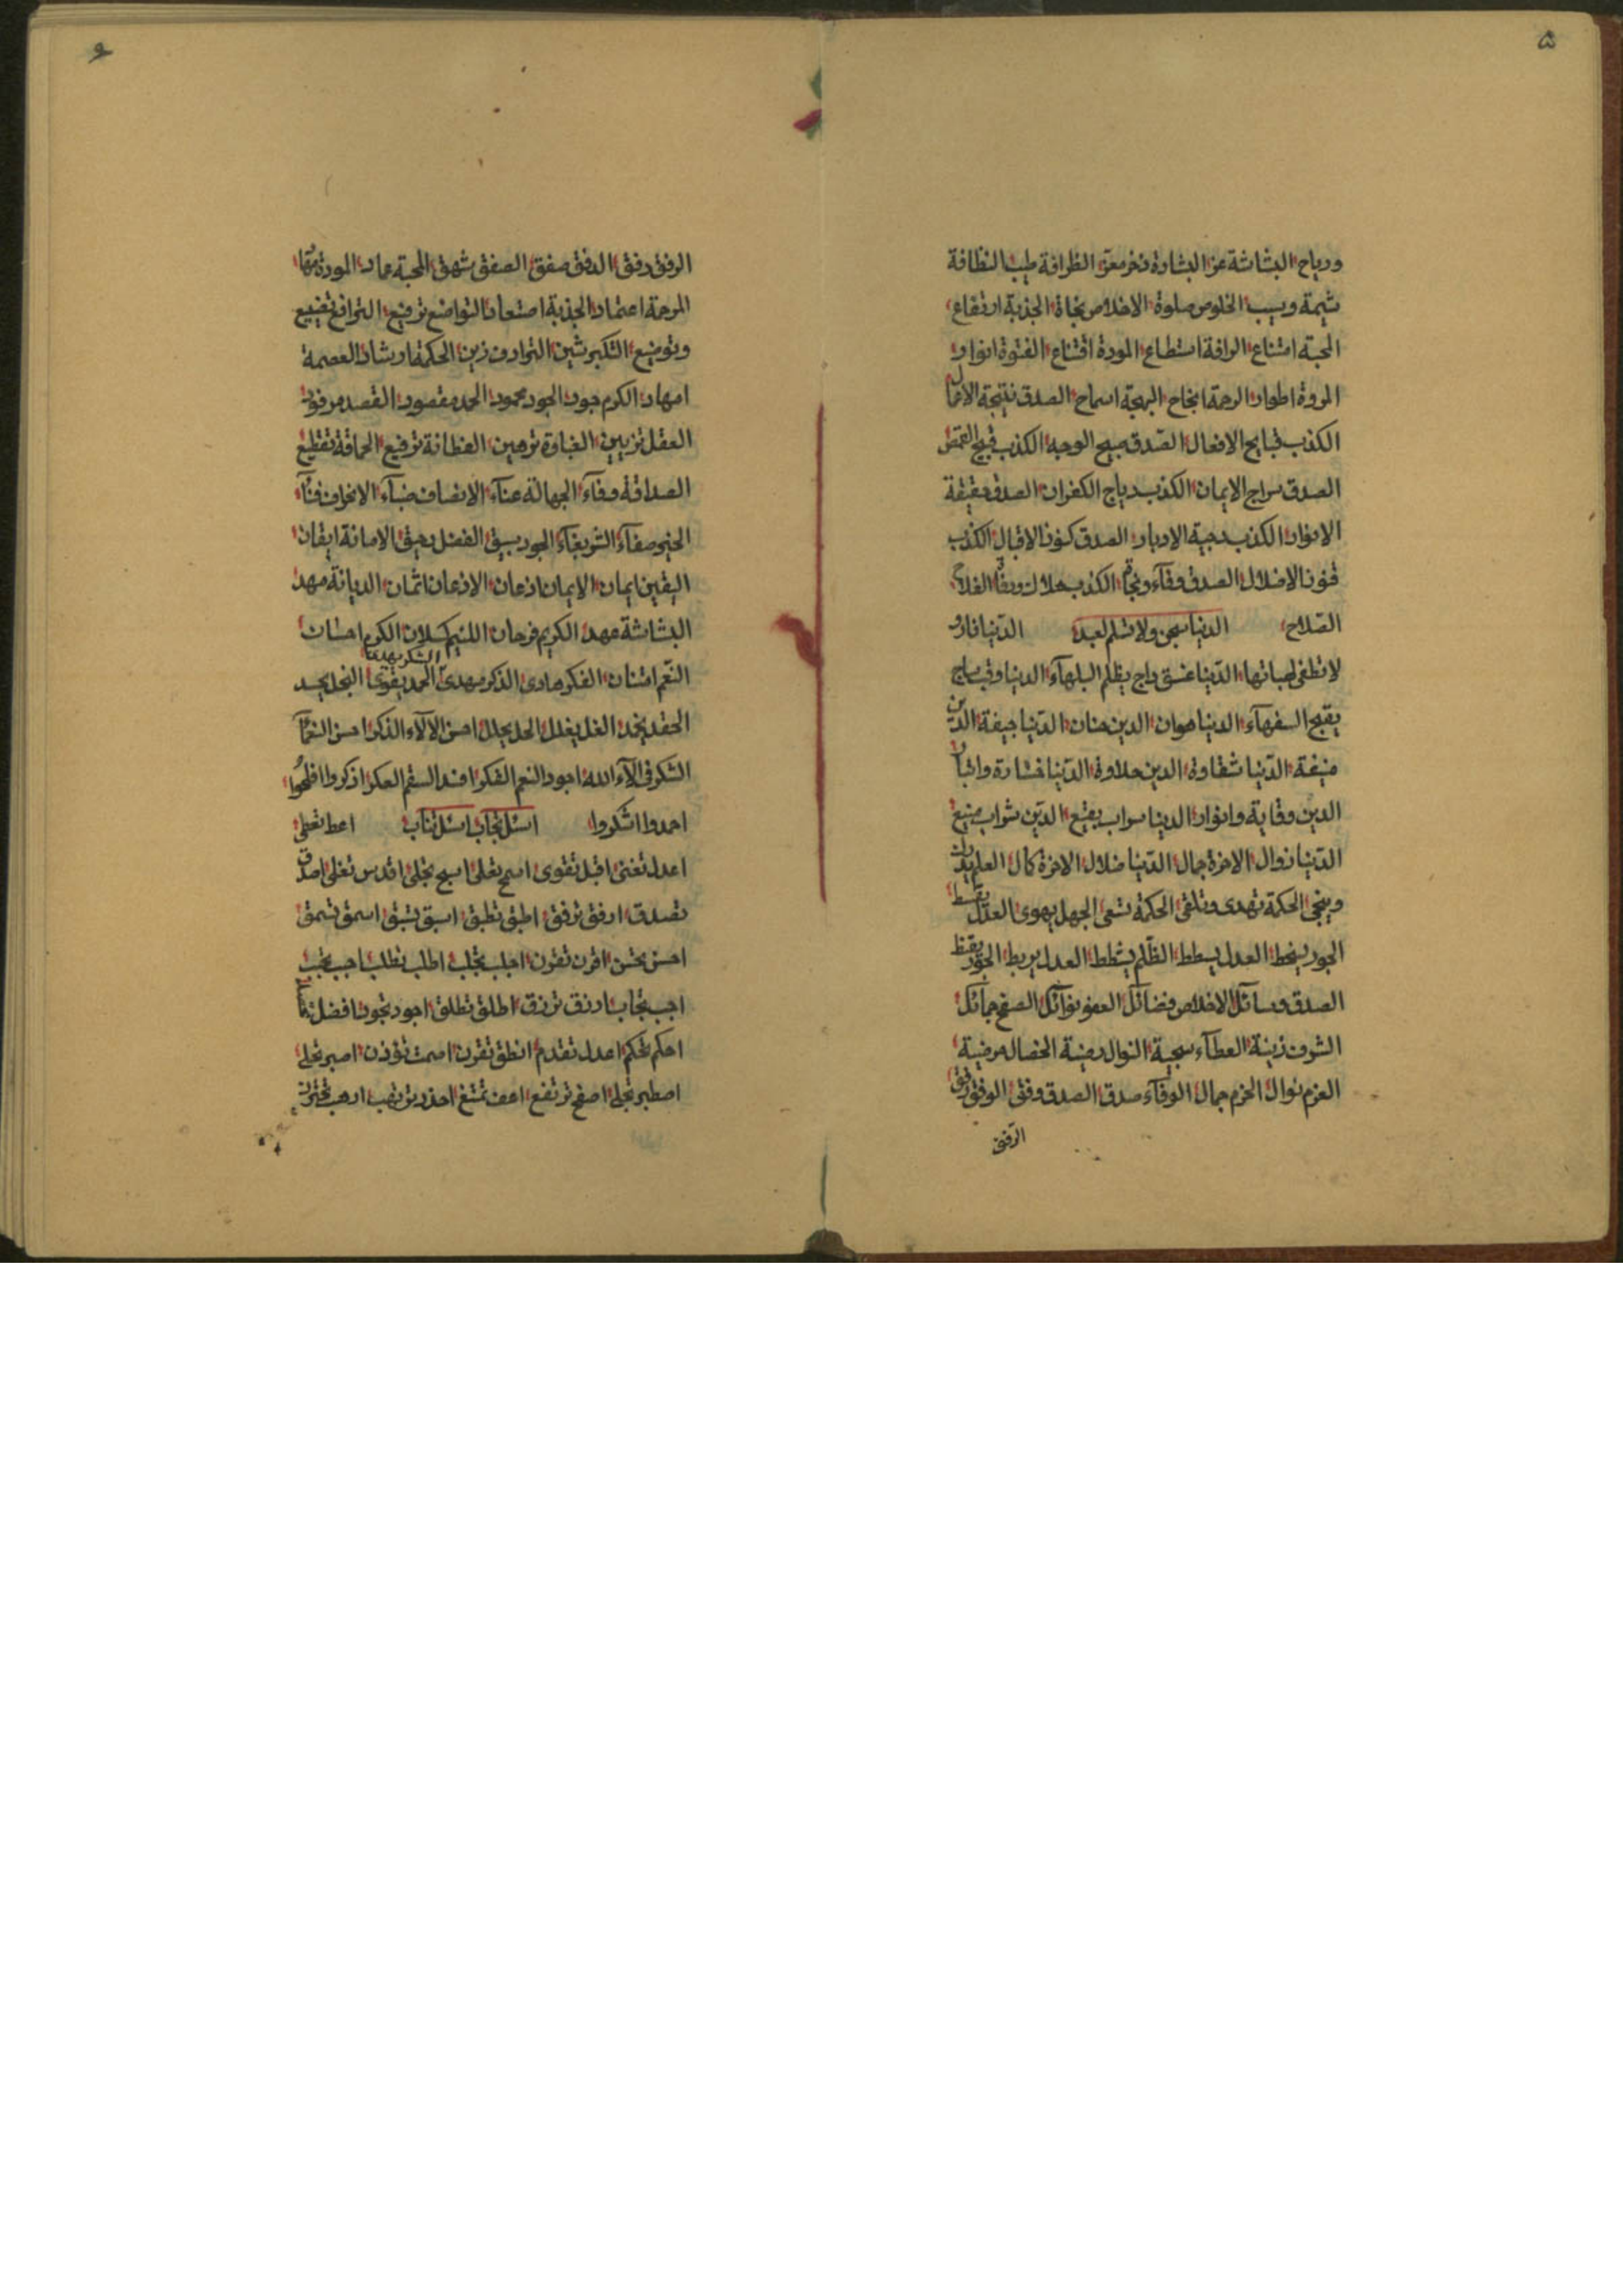 ۵
ورياح البشاشة عز البشارة ذخر معز الظرافة طيب النظافة
شيمة وسيب الخلوص صلوة الاخلاص نجاة الجذبة ارتفاع
المحبة امتناع الرافة استطاع المودة اقتناع الفتوة انوار
المروة اطوار الرحمة انجاح البهجة اسماح الصدق نتيجة الاعمال
الكذب قبايح الافعال الصدق صبيح الوجه الكذب قبيح
الصدق سراج الايمان الكذب دياج الكفران الصدق حقيقة
الانوار الكذب دجية الادبار الصدق كنوز الاقبال الكذب
فنون الاضلال الصدق وفآء ونجاح الكذب هلاك
الصلاح الدنيا سجن ولا تسلم لعبد الدنيا نار و
لا تطفى لهباتها الدنيا غسق داج يظلم البلهآء الدنيا وقب ساج
يقبح السفهآء الدنيا هوان الدين حنان الدنيا جيفة الدين
منيفة الدنيا شقاوة الدين حلاوة الدنيا خسارة وانبار
الدين وقاية وانوار الدنيا سراب بقيع الدين شراب منيع
الدنيا زوال الاخرة جمال الدنيا ضلال الاخرة كمال العلم
وينجى الحكمة تهدى وتلقى الحكمة تسعى الجهل يهوى العدل يقسط
الجور يسخط العدل يبسط الظلم يشطط العدل يربط الجور
الصدق وسآئل الاخلاص فضآئل العفو نوآئل الصفح جمآئل
الشرف زينة العطآء سجية النوال رضية الخصال مرضية
العزم نوال الحزم جمال الوفآء صدق الصدق وفق الوفق رفق
الرفق
۶
الرفق دفق الدفق صفق الصفق شهق المحبة عماد المودة
المرحمة اعتماد الجذبة استعاد التواضع ترفيع الترافع تضييع
وتوضيع التكبر شين الترادف زين الحكمة ارشاد العصمة
امهاد الكرم جود الجود محمود الحمد مقصود القصد مرفود
العقل تزيين الغباوة توهين الفطانة ترفيع الحماقة تفظيع
الصداقة وفآء الجهالة عنآء الانصاف ضيآء الانحراف فنآء
الخير صفآء الشر بغآء الجود يسبق الفضل رحيق الامانة ايقان
اليقين ايمان الايمان اذعان الاذعان اتمان الديانة مهد
البشاشة مهد الكريم فرحان اللئيم كسلان الكرم احسان
النعم امتنان الفكر هادى الذكر مهدى الشكر الحمد يقوى البخل يحسد
الحقد يخمد الغل يغلل الحل يحلل احسن الآلآء الذكر احسن النعمآء
الشكر فى الآء الله اجود النعم الفكر افند السقم العكر اذكروا افلحوا
احمدوا اشكروا اسئل تجاب اسئل تثاب اعط تعطى
اعدل تغنى اقبل تقوى اسمح تعلى اسبح تجلى اقدس تعلى اصدق
تصدق ارفق ترفق اطبق تطبق اسبق تسبق اسمق تسمق
احسن تحسن اقرن تقرن اجلب تجلب اطلب تطلب احبب تحب
اجب تجاب ارزق ترزق اطلق تطلق اجود تجود افضل
احكم تحكم اعدل تقدم انطق تقرن اصمت توزن اصبر تجلى
اصطبر تجلى اصفح ترتفع اعف تمتنع احذر ارهب تحترز